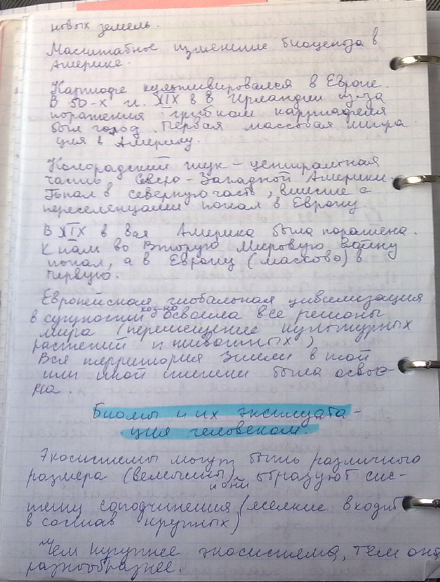 новых земель.
Масштабное изменение биоценоза в
Америке.
Картофе культивировался в Европе
В 50-х г. XIX в в Ирландии из-за
поражения грибком картофеля
был голод. Первая массовая мигра
ция в Америку.
Колорадский жук – центральная
часть Северо-Западной Америки.
Попал в северную часть, вместе с
переселенцами попал в Европу
В XIX в вся Америка была поражена.
К нам во Вторую Мировую войну
попал, а в Европу (массово) в
первую.
Европейская глобальная цивилизация
в сущности освоила все регионы
мира (перемещение культурных
растений и животных)
Вся территория Земли в той
или иной степени была освое-
на.
Биомы и их эксплуата-
ция человеком.
Экосистемы могут быть различного
размера (величины) и они образуют сис-
тему соподчинения (мелкие входят
в состав крупных)
Чем крупнее экосистема, тем она
разнообразнее.